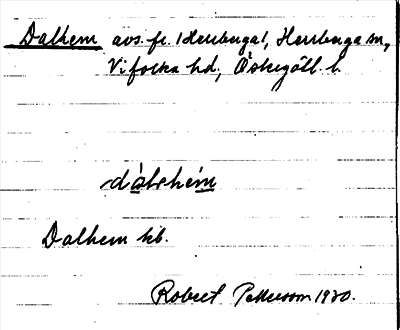 Dalhem avs. fr. 1 Herrberga 1, Herrberga sn,
Vifolka hd, Östergötl. l.
dálehèm
Dalhem hb.
Robert Pettersson 1920.